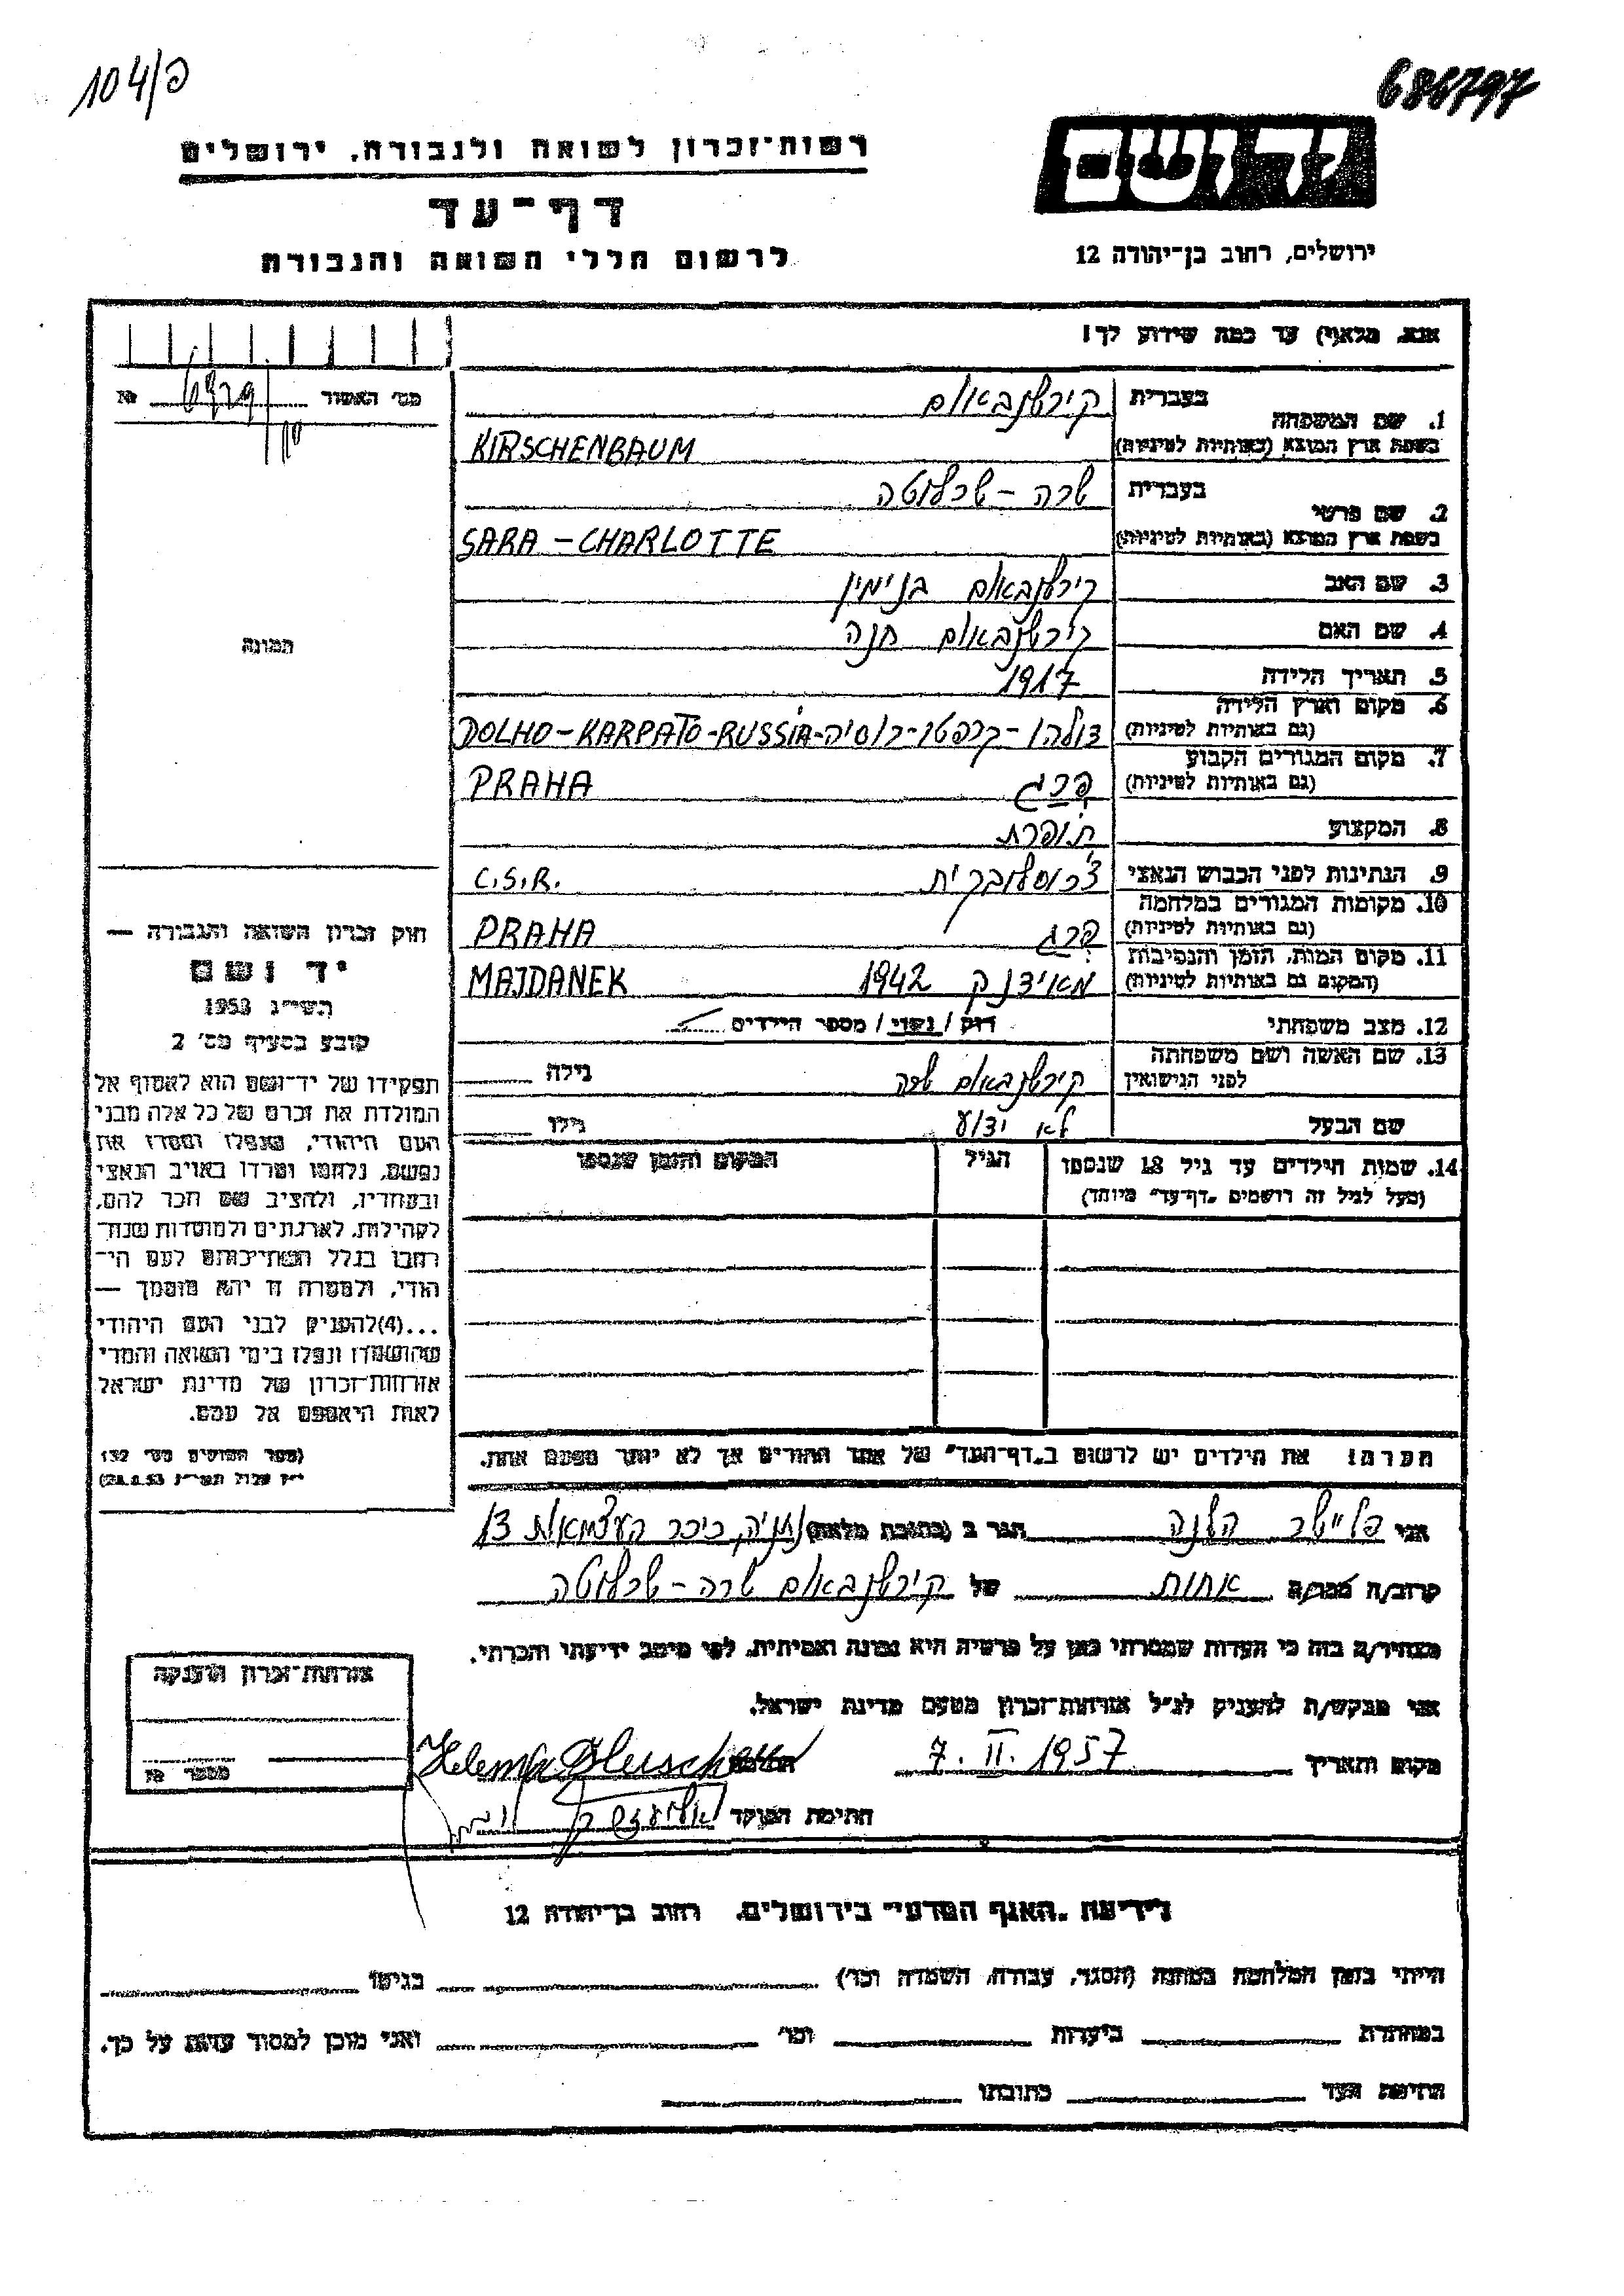 104/פ
686797
רשות־זכרון לשואה ולגבורה, ירושלים
יד ושם
דף־עד
לרשום חללי השואה והגבורה
ירושלים, רחוב בן־יהודה 12
אנא, מלא(י) עד כמה שידוע לך!
מס׳ האשור № 6929
1. שם המשפחה
בעברית קירשנבאום
בשפת ארץ המוצא (באותיות לטיניות) KIRSCHENBAUM
2. שם פרטי
בעברית שרה - שרלוטה
בשפת ארץ המוצא (באותיות לטיניות) SARA - CHARLOTTE
3. שם האב קירשנבאום בנימין
4. שם האם קירשנבאום חנה
5. תאריך הלידה 1917
6. מקום וארץ הלידה
(גם באותיות לטיניות) דולהו - קרפטו - רוסיה - DOLHO - KARPATO - RUSSIA
7. מקום המגורים הקבוע
(גם באותיות לטיניות) פרג PRAHA
8. המקצוע תופרת
9. הנתינות לפני הכבוש הנאצי צ׳כוסלובקית C.S.R.
10. מקומות המגורים במלחמה
(גם באותיות לטיניות) פרג PRAHA
11. מקום המות, הזמן והנסיבות
(המקום גם באותיות לטיניות) מאידנק 1942 MAJDANEK
12. מצב משפחתי רוק / נשוי / מספר הילדים
13. שם האשה ושם משפחתה
לפני הנישואין קירשנבאום שרה גילה
שם הבעל לא ידוע גילו
14. שמות הילדים עד גיל 18 שנספו
(מעל לגיל זה רושמים „דף־עד״ מיוחד)
הגיל
המקום והזמן שנספו
תמונה
חוק זכרון השואה והגבורה —
יד ושם
תשי״ג 1953
קובע בסעיף מס׳ 2
תפקידו של יד־ושם הוא לאסוף אל
המולדת את זכרם של כל אלה מבני
העם היהודי, שנפלו ומסרו את
נפשם, נלחמו ומרדו באויב הנאצי
ובעוזריו, ולהציב שם וזכר להם,
לקהילות, לארגונים ולמוסדות שנח־
רבו בגלל השתייכותם לעם הי־
הודי, ולמטרה זו יהא מוסמך —
...(4)להעניק לבני העם היהודי
שהושמדו ונפלו בימי השואה והמרי
אזרחות־זכרון של מדינת ישראל
לאות היאספם אל עמם.
(ספר החוקים מס׳ 132
י״ז אלול תשי״ג 28.8.53)
הערה: את הילדים יש לרשום ב„דף־העד״ של אחד ההורים אך לא יותר מפעם אחת.
אני פליישר הלנה הגר ב (כתובת מלאה) נתניה, כיכר העצמאות 13
קרוב/ה מכר/ה אחות של קירשנבאום שרה - שרלוטה
מצהיר/ה בזה כי העדות שמסרתי כאן על פרטיה היא נכונה ואמיתית, לפי מיטב ידיעתי והכרתי.
אני מבקש/ת להעניק לנ״ל אזרחות־זכרון מטעם מדינת ישראל.
מקום ותאריך 7. II. 1957 חתימה
חתימת הפוקד
אזרחות־זכרון הוענקה
מספר №
לידיעת „האגף המדעי״ בירושלים, רחוב בן־יהודה 12
הייתי בזמן המלחמה במחנה (הסגר, עבודה, השמדה וכו׳) בגיטו
במחתרת ביערות וכו׳ ואני מוכן למסור עדות על כך.
חתימת העד כתובתו